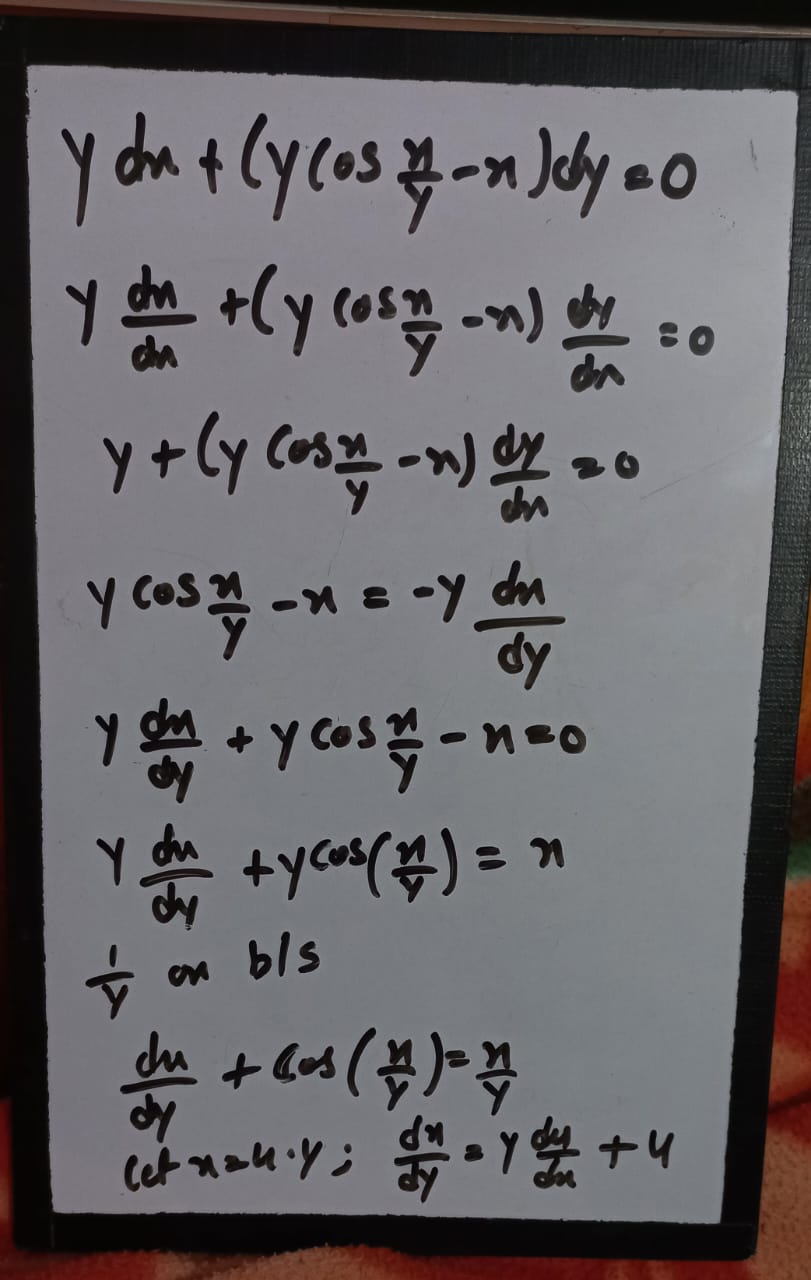 y dx + (y cos x/y - x) dy = 0
y dx/dx + (y cos x/y - x) dy/dx = 0
y + (y cos x/y - x) dy/dx = 0
y cos x/y - x = -y dx/dy
y dx/dy + y cos x/y - x = 0
y dx/dy + y cos(x/y) = x
1/y on b/s
dx/dy + cos(x/y) = x/y
let x = u·y ; dx/dy = y du/dx + u